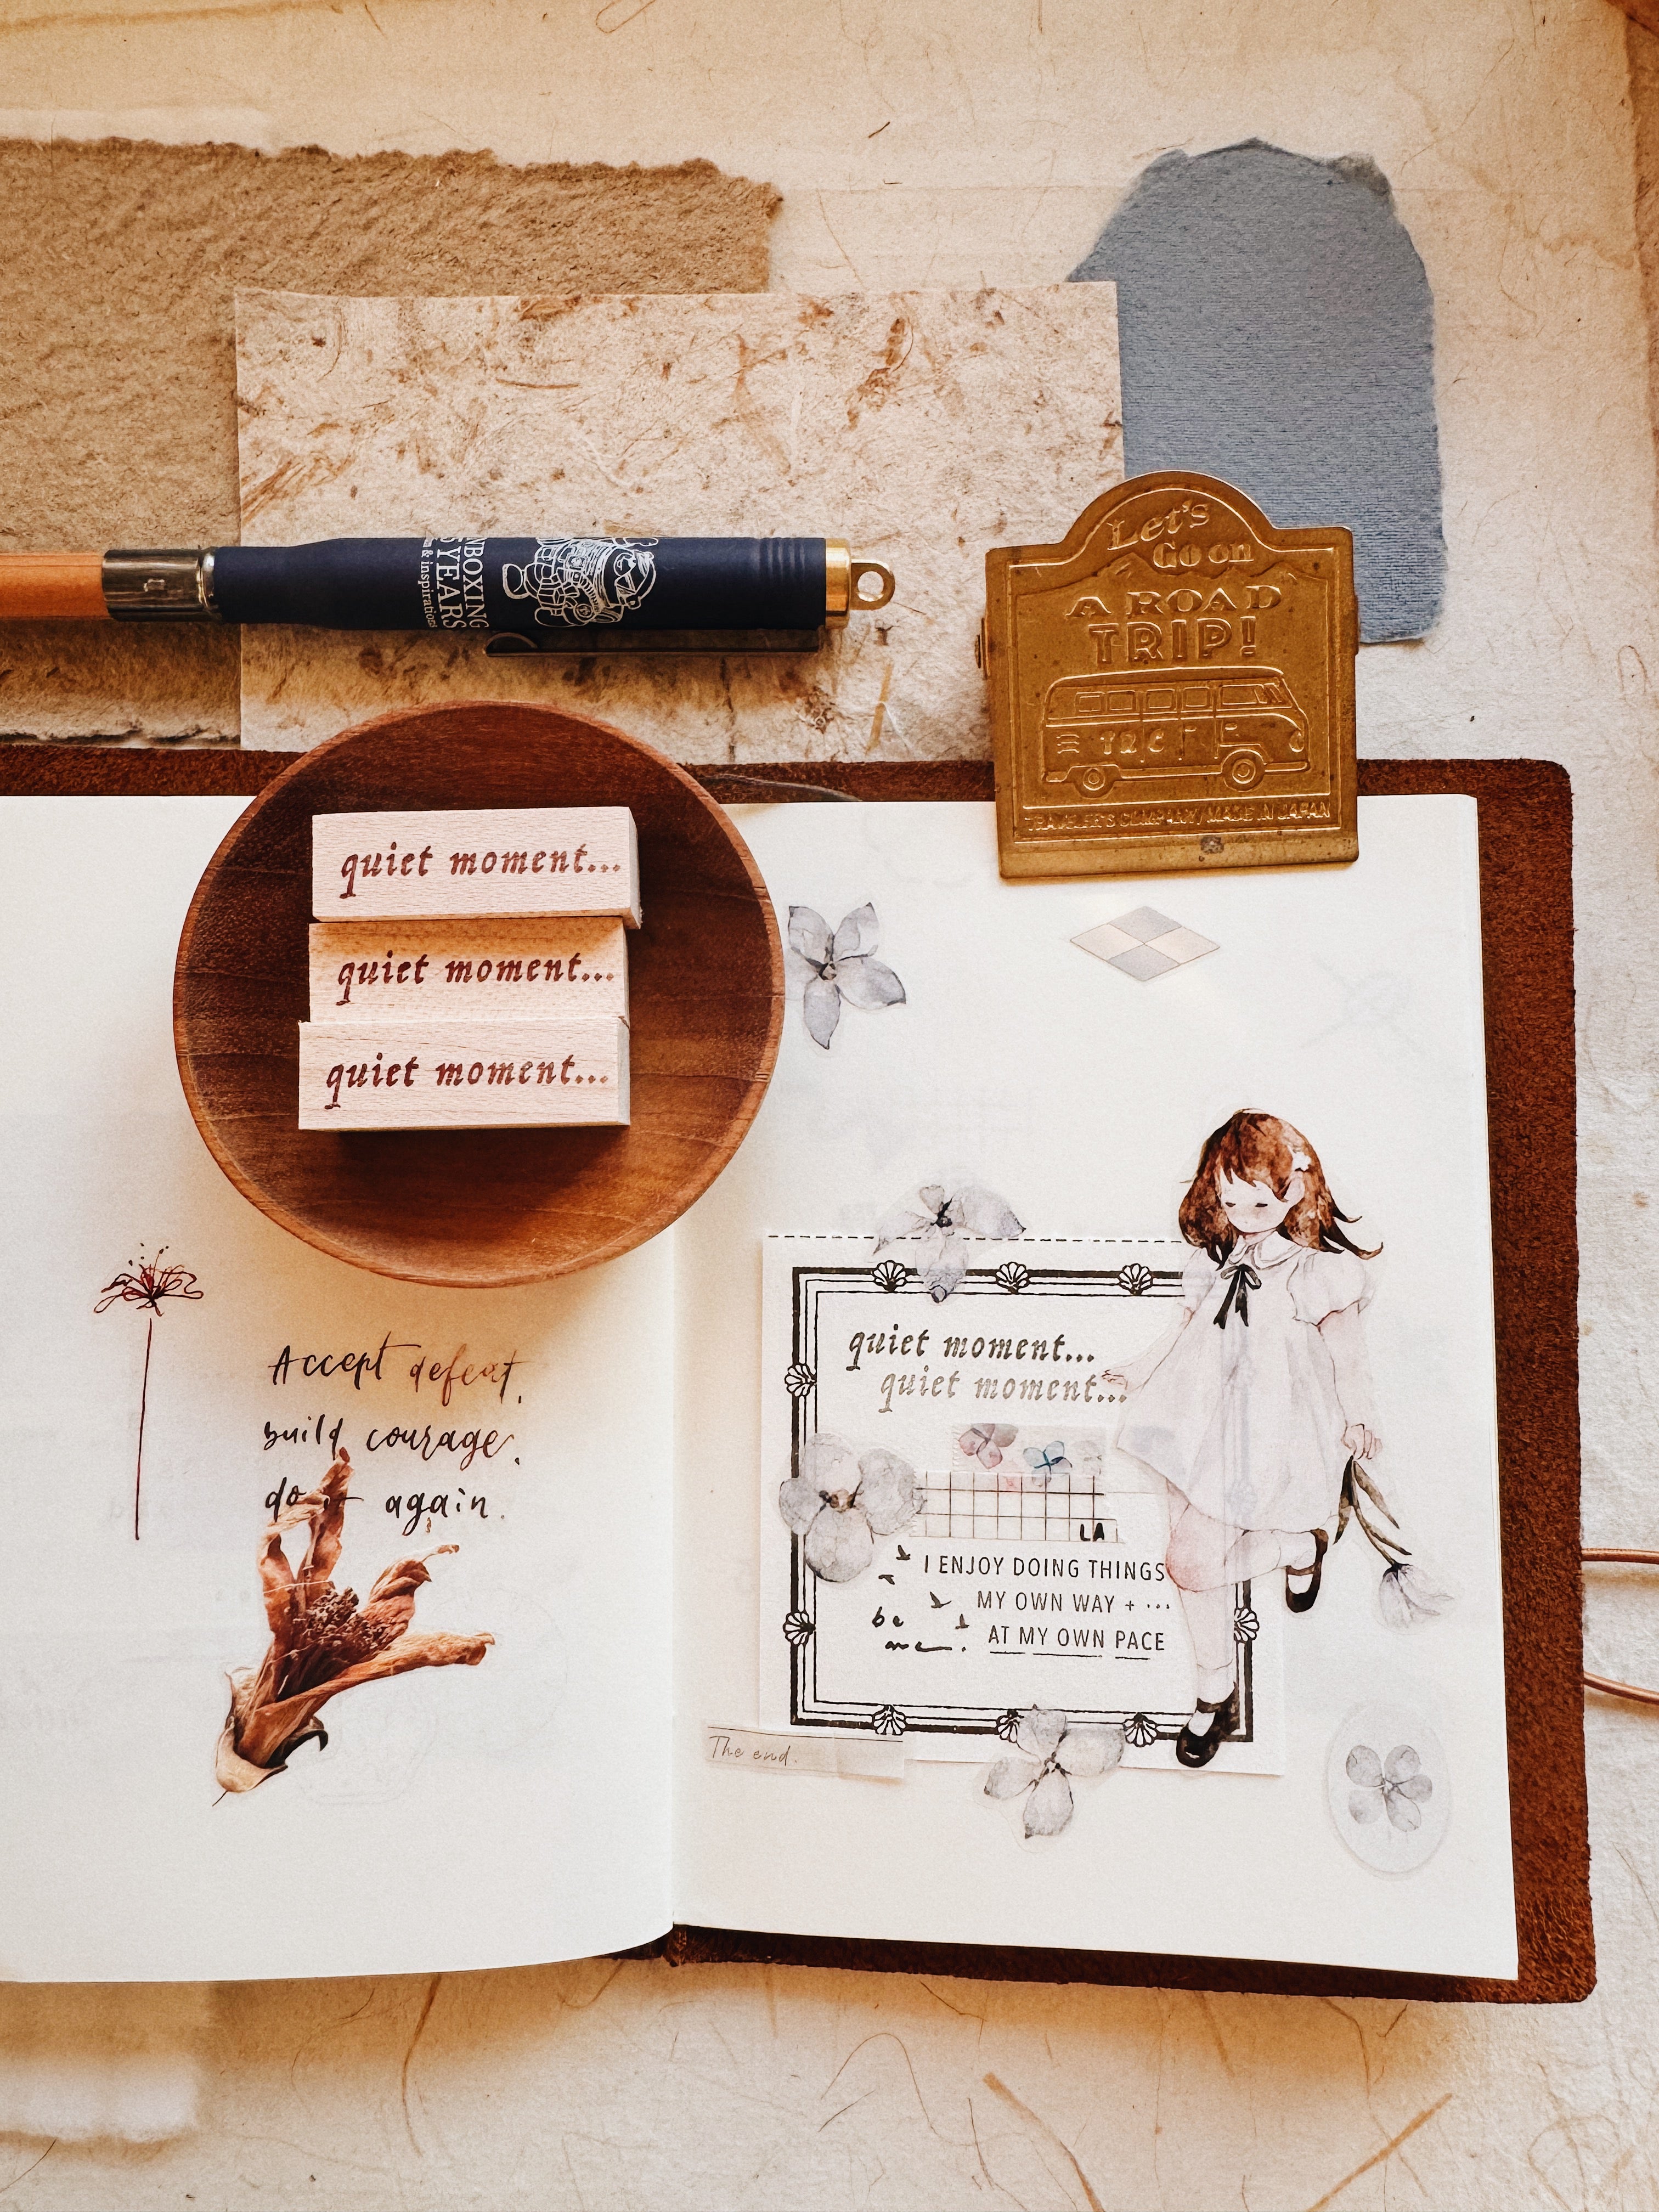 YEARS
& inspiration
Let's
Go on
A ROAD
TRIP!
TRC
TRAVELER'S COMPANY / MADE IN JAPAN
quiet moment...
quiet moment...
quiet moment...
Accept defeat,
build courage,
do it again.
quiet moment...
quiet moment...
LA
I ENJOY DOING THINGS
MY OWN WAY + ...
AT MY OWN PACE
be
me.
The end.